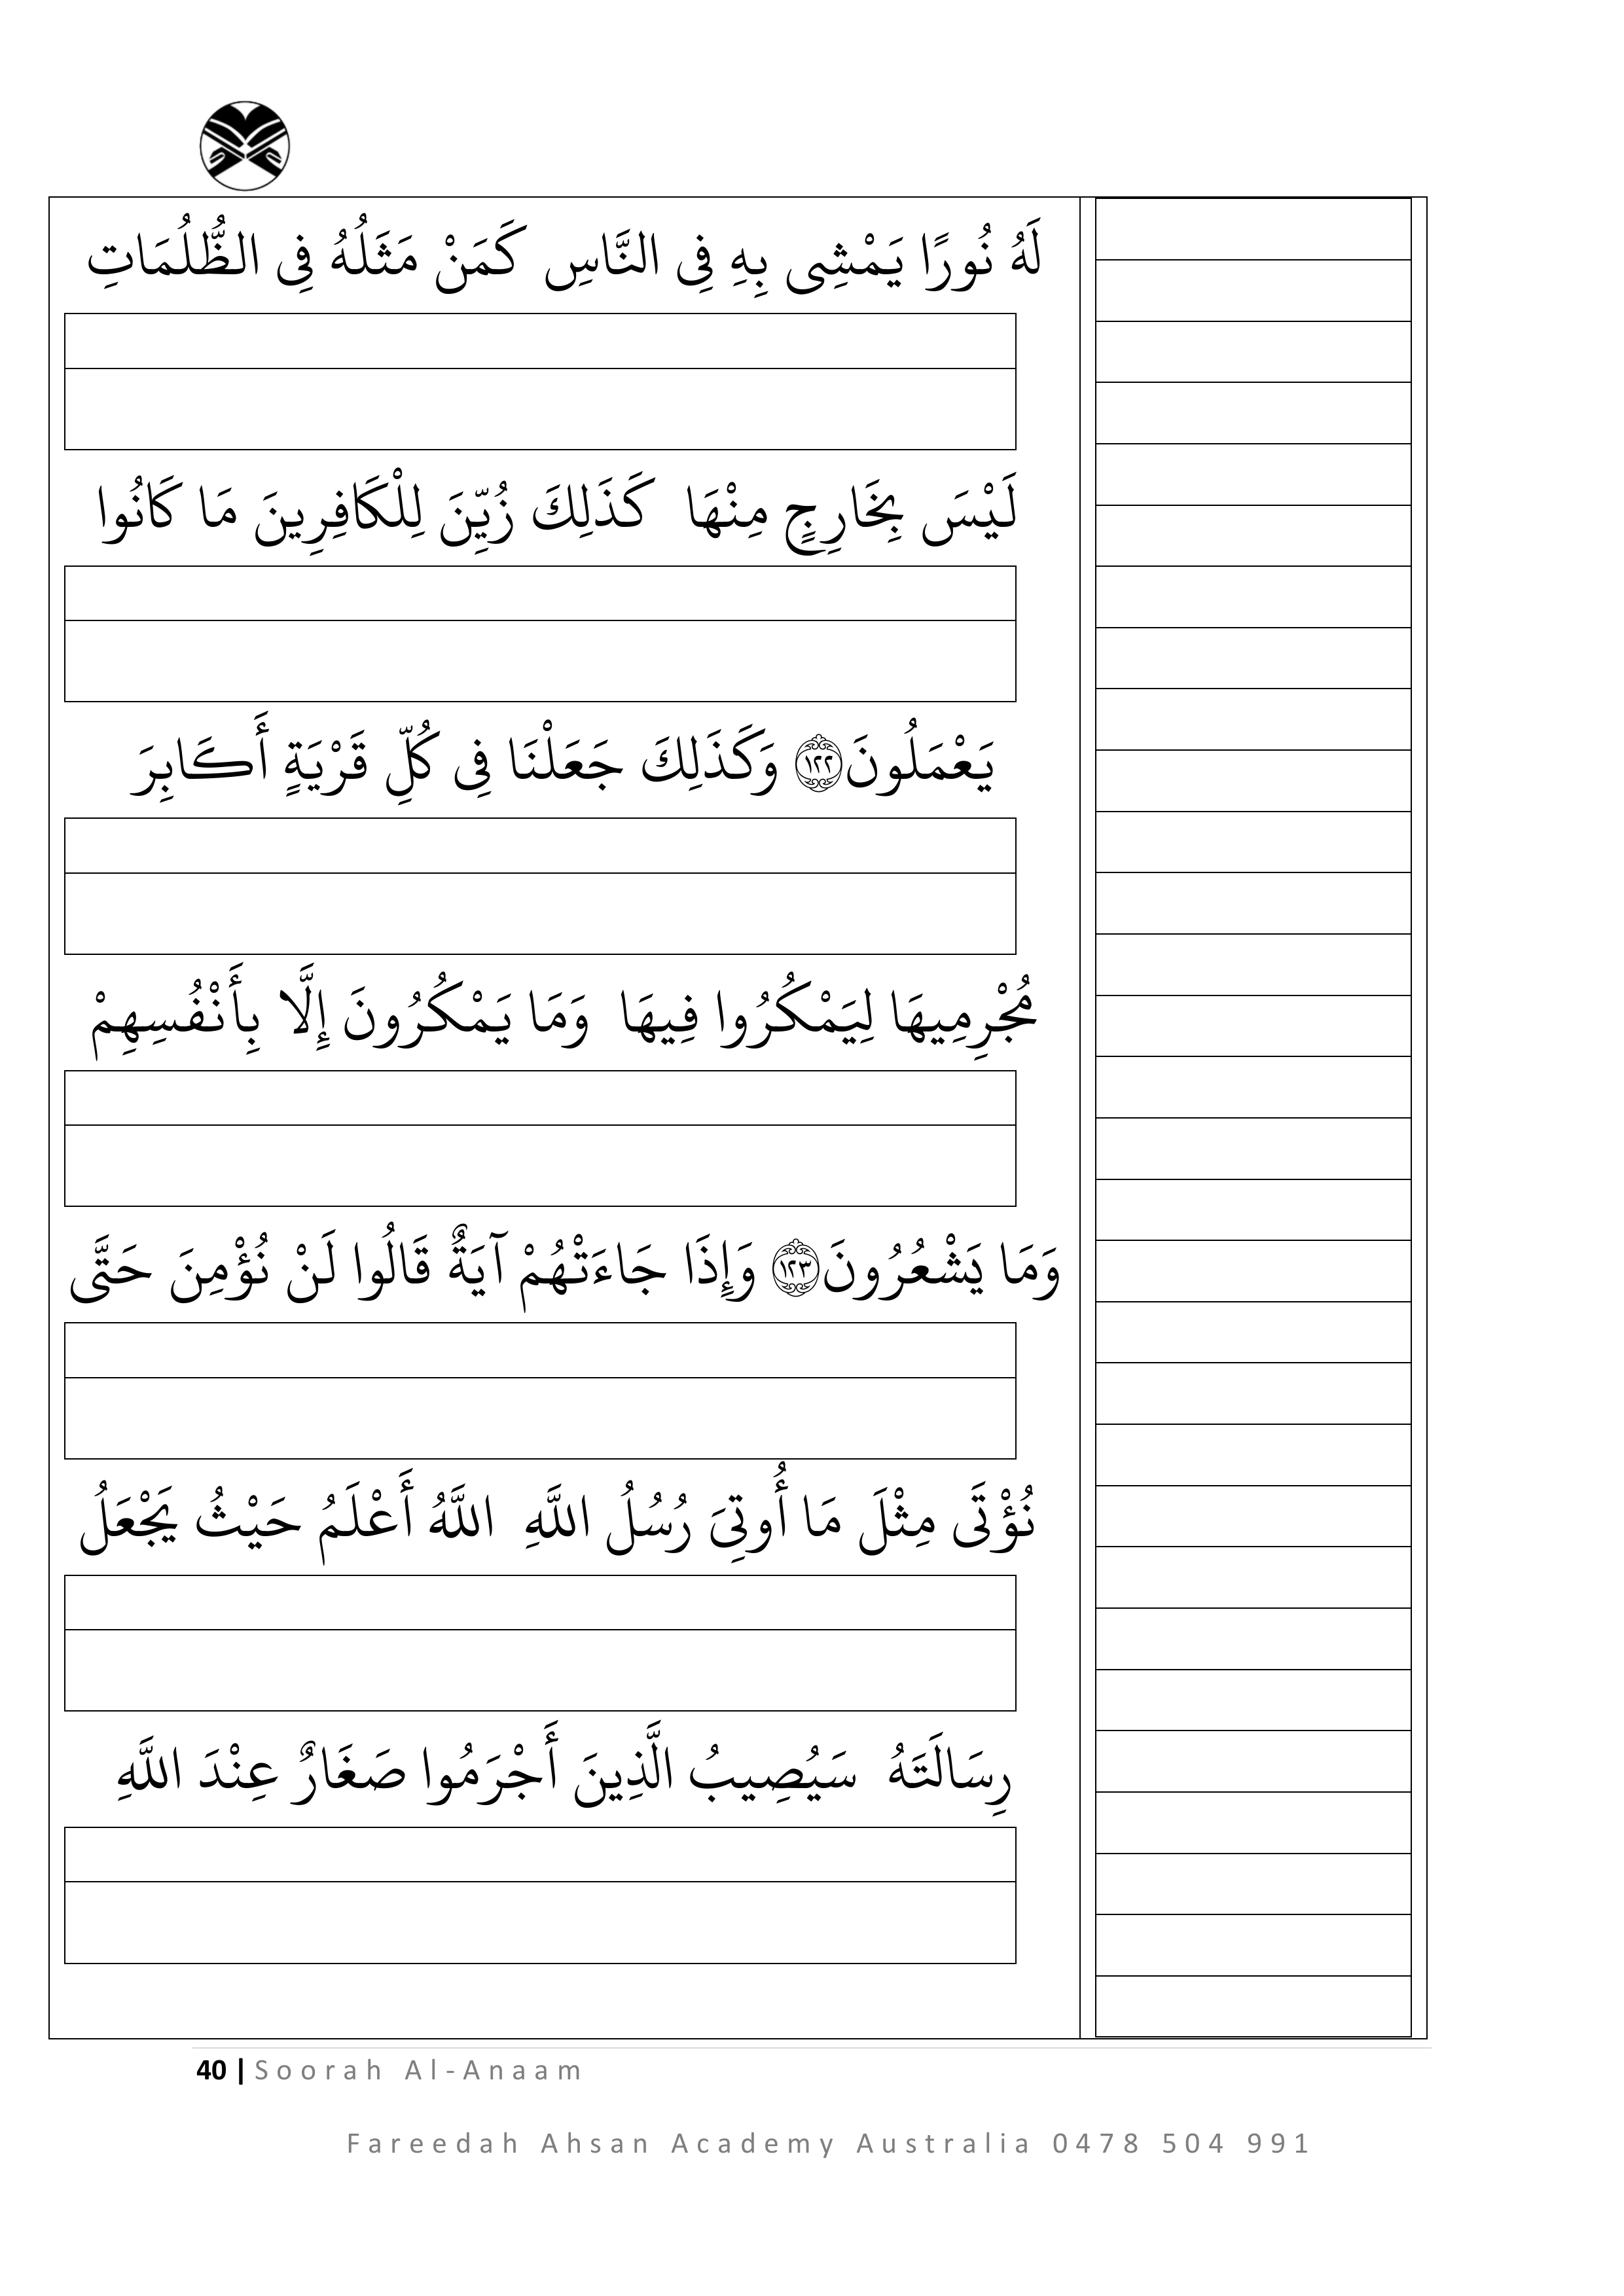 لَهُ نُورًا يَمْشِى بِهِ فِى النَّاسِ كَمَنْ مَثَلُهُ فِى الظُّلُمَاتِ
لَيْسَ بِخَارِجٍ مِنْهَا كَذَلِكَ زُيِّنَ لِلْكَافِرِينَ مَا كَانُوا
يَعْمَلُونَ ١٢٢ وَكَذَلِكَ جَعَلْنَا فِى كُلِّ قَرْيَةٍ أَكَابِرَ
مُجْرِمِيهَا لِيَمْكُرُوا فِيهَا وَمَا يَمْكُرُونَ إِلَّا بِأَنْفُسِهِمْ
وَمَا يَشْعُرُونَ ١٢٣ وَإِذَا جَاءَتْهُمْ آيَةٌ قَالُوا لَنْ نُؤْمِنَ حَتَّى
نُؤْتَى مِثْلَ مَا أُوتِىَ رُسُلُ اللَّهِ اللَّهُ أَعْلَمُ حَيْثُ يَجْعَلُ
رِسَالَتَهُ سَيُصِيبُ الَّذِينَ أَجْرَمُوا صَغَارٌ عِنْدَ اللَّهِ
40 | Soorah Al-Anaam
Fareedah Ahsan Academy Australia 0478 504 991